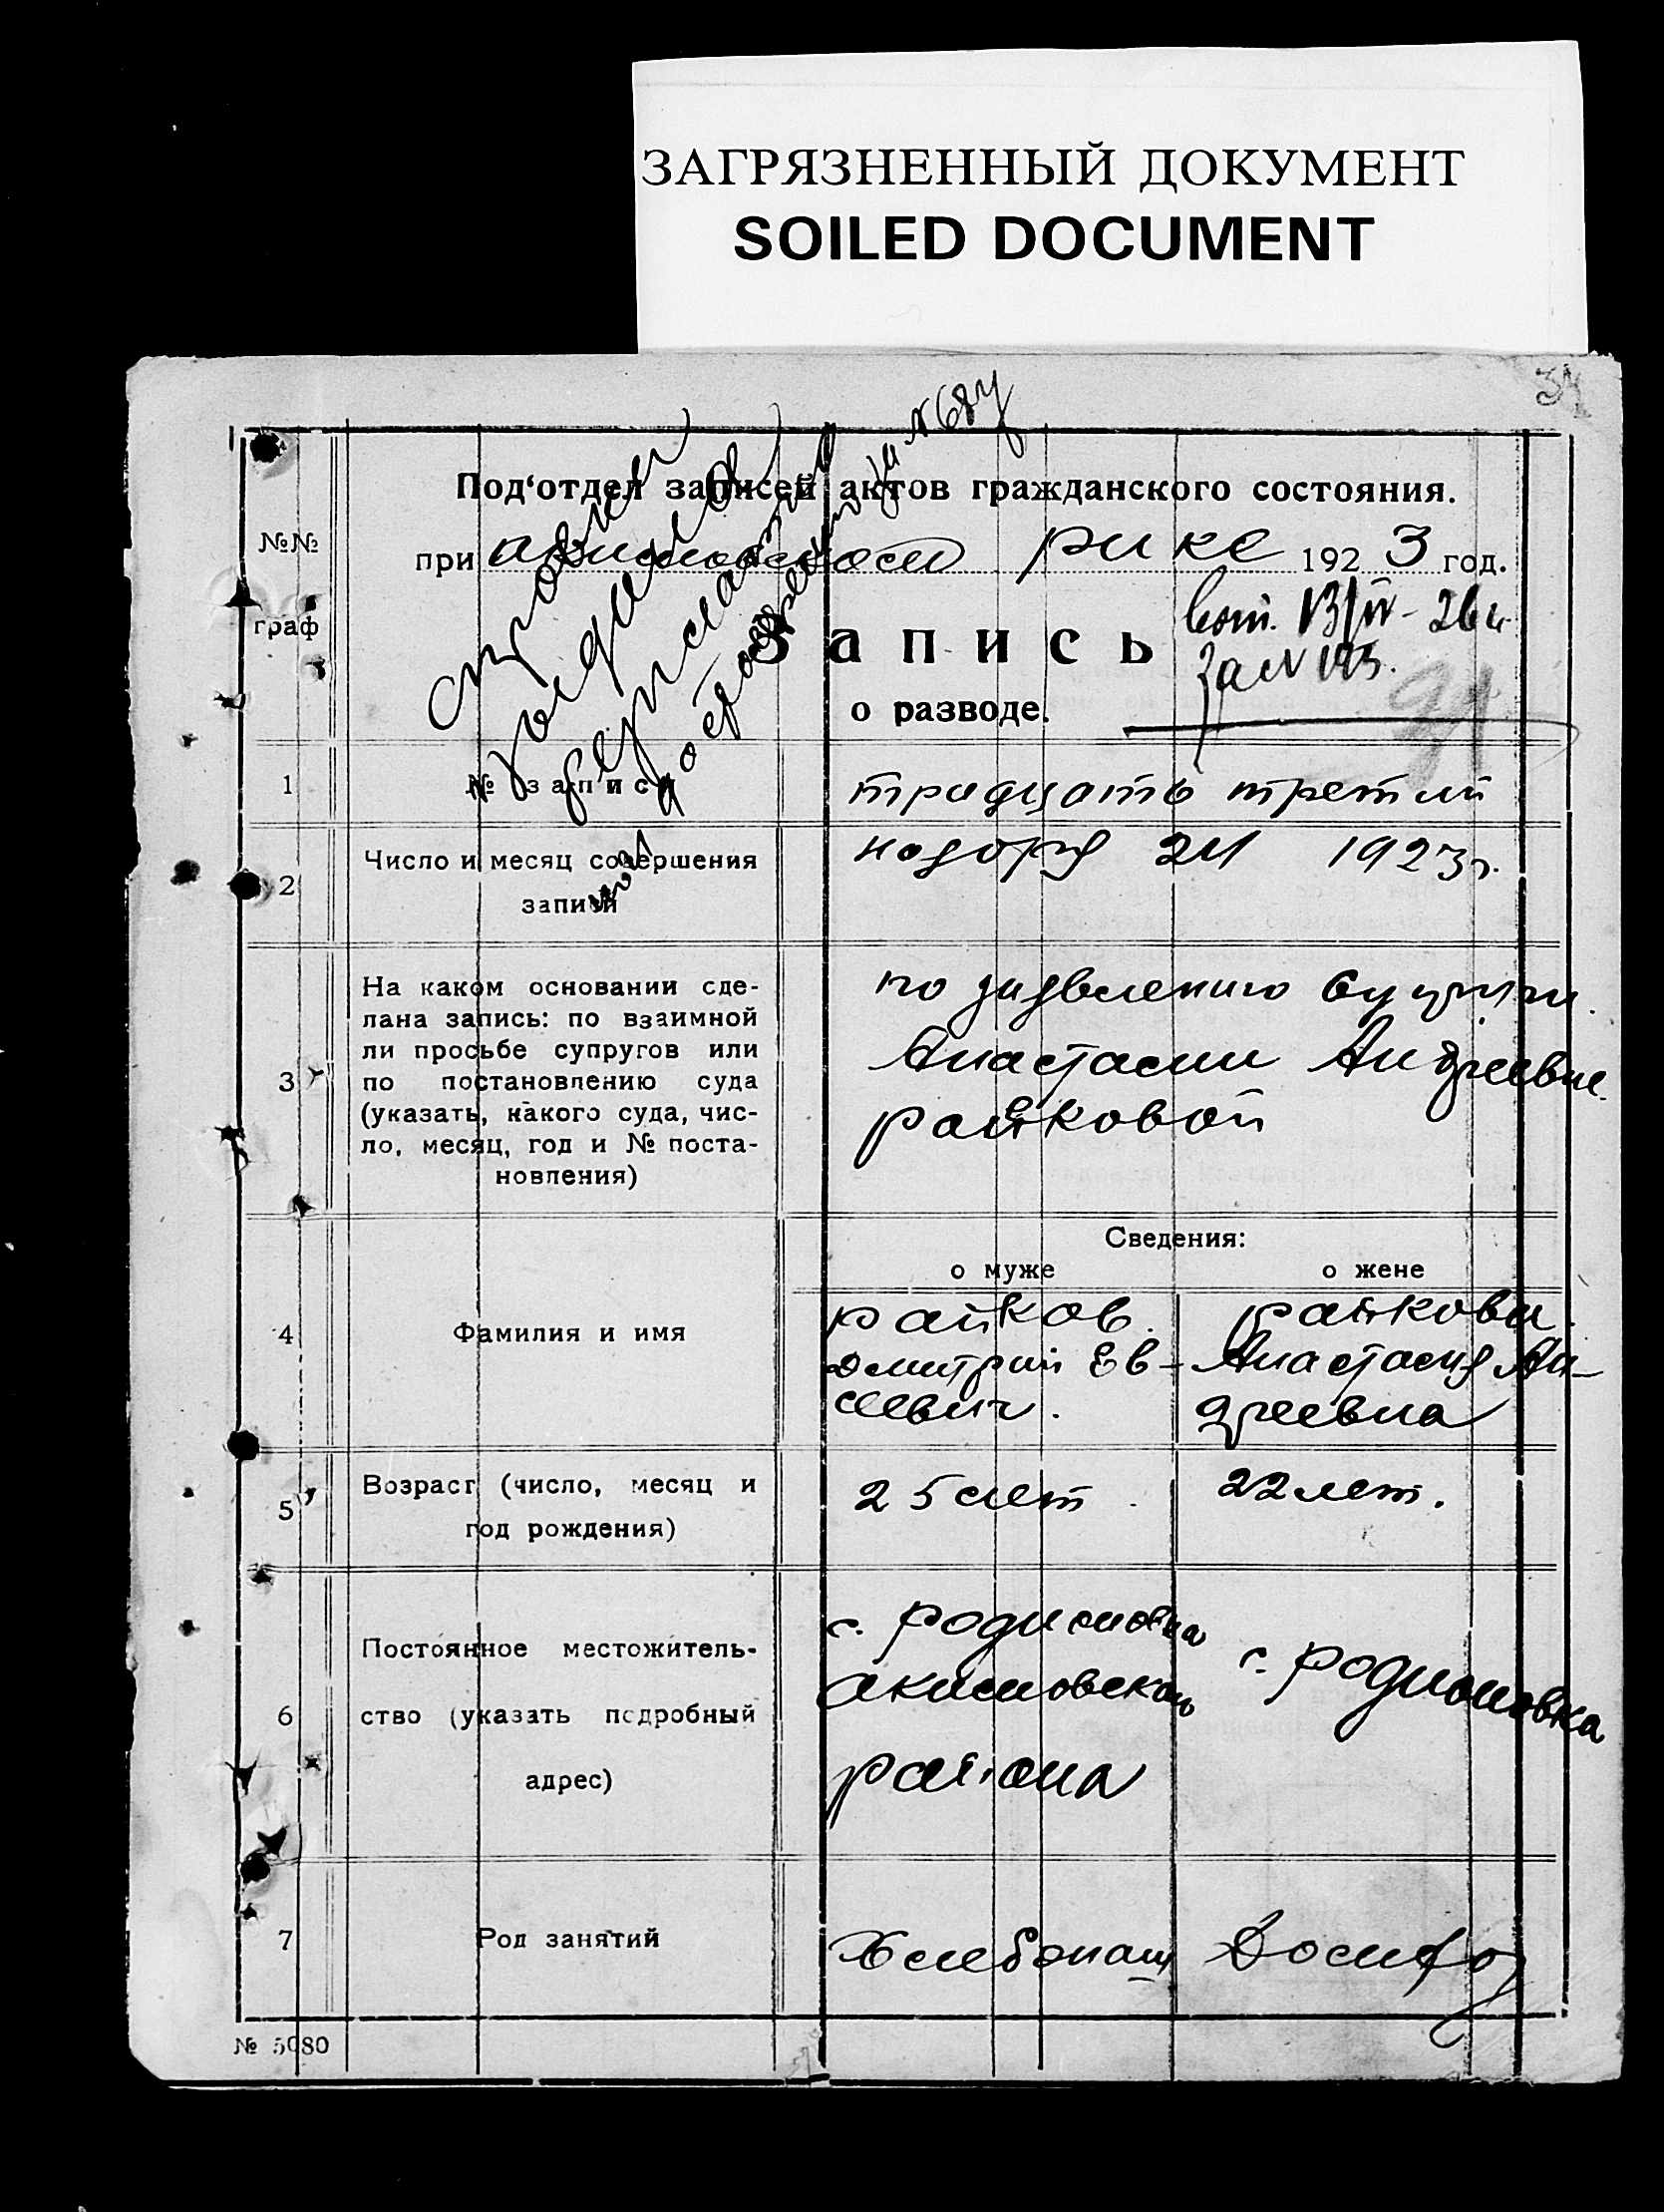 ЗАГРЯЗНЕННЫЙ ДОКУМЕНТ
SOILED DOCUMENT
34
Под‘отдел записей актов гражданского состояния.
№№
граф
при акимовском рике 1923 год.
Запись
о разводе.
за N
1 № записи тридцать третий
2 Число и месяц совершения
записи
ноября 24 1923 г.
3 На каком основании сде-
лана запись: по взаимной
ли просьбе супругов или
по постановлению суда
(указать, какого суда, чис-
ло, месяц, год и № поста-
новления)
по заявлению
Анастасии Андреевне
райковой
Сведения:
о муже о жене
4 Фамилия и имя
райков.
Дмитрий Ев-
сеевич.
райкова.
Анастасия Ан-
дреевна
5 Возраст (число, месяц и
год рождения)
25 лет 22 лет.
6 Постоянное местожитель-
ство (указать подробный
адрес)
с. родионовка
акимовского
района
с. родионовка
7 Род занятий Хлебопаш Домхоз
№ 5080